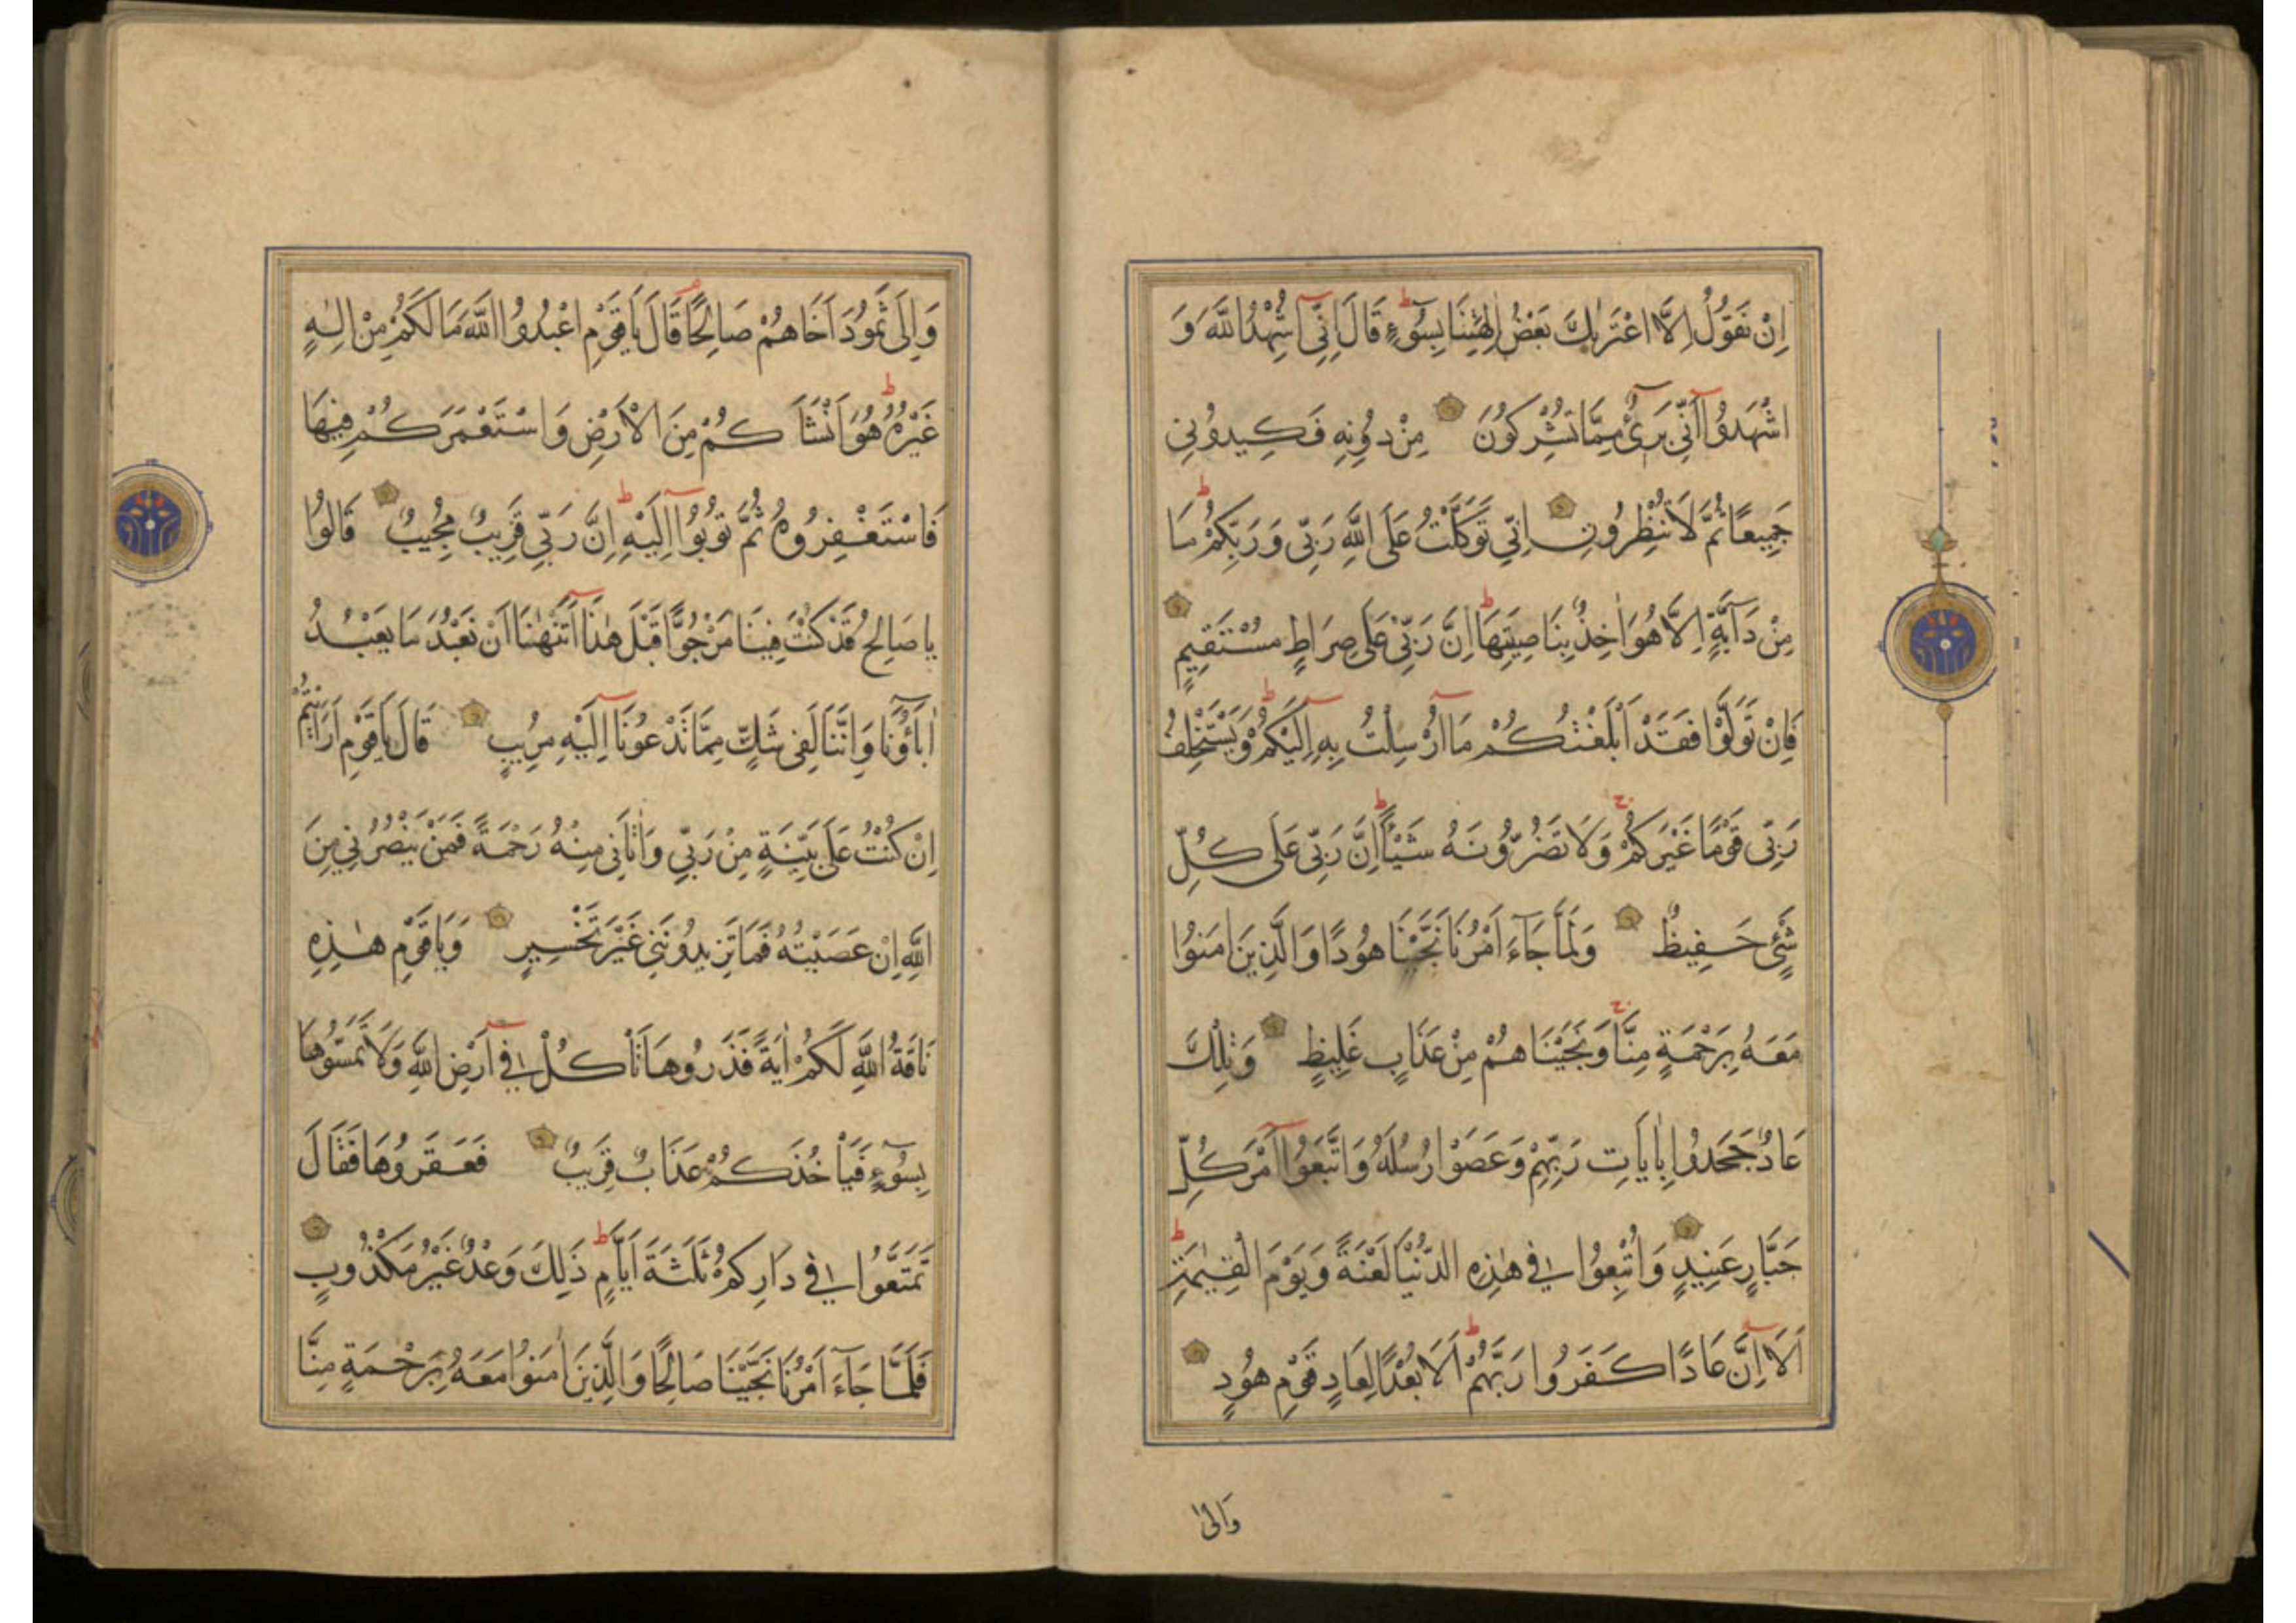 اِنْ نَقُولُ اِلَّا اعْتَرٰيكَ بَعْضُ اٰلِهَتِنَا بِسُوٓءٍ قَالَ اِنِّٓى اُشْهِدُ اللّٰهَ وَ
اشْهَدُٓوا اَنِّى بَرٓىءٌ مِمَّا تُشْرِكُونَ مِنْ دُونِهِ فَكِيدُونِى
جَمِيعًا ثُمَّ لَا تُنْظِرُونِ اِنِّى تَوَكَّلْتُ عَلَى اللّٰهِ رَبِّى وَرَبِّكُمْ مَا
مِنْ دَآبَّةٍ اِلَّا هُوَ اٰخِذٌ بِنَاصِيَتِهَا اِنَّ رَبِّى عَلٰى صِرَاطٍ مُسْتَقِيمٍ
فَاِنْ تَوَلَّوْا فَقَدْ اَبْلَغْتُكُمْ مَٓا اُرْسِلْتُ بِهِٓ اِلَيْكُمْ وَيَسْتَخْلِفُ
رَبِّى قَوْمًا غَيْرَكُمْ وَلَا تَضُرُّونَهُ شَيْـًٔا اِنَّ رَبِّى عَلٰى كُلِّ
شَىْءٍ حَفِيظٌ وَلَمَّا جَآءَ اَمْرُنَا نَجَّيْنَا هُودًا وَالَّذِينَ اٰمَنُوا
مَعَهُ بِرَحْمَةٍ مِنَّا وَنَجَّيْنَاهُمْ مِنْ عَذَابٍ غَلِيظٍ وَتِلْكَ
عَادٌ جَحَدُوا بِاٰيَاتِ رَبِّهِمْ وَعَصَوْا رُسُلَهُ وَاتَّبَعُٓوا اَمْرَ كُلِّ
جَبَّارٍ عَنِيدٍ وَاُتْبِعُوا فِى هٰذِهِ الدُّنْيَا لَعْنَةً وَيَوْمَ الْقِيٰمَةِ
اَلَٓا اِنَّ عَادًا كَفَرُوا رَبَّهُمْ اَلَا بُعْدًا لِعَادٍ قَوْمِ هُودٍ
وَاِلٰى
وَاِلٰى ثَمُودَ اَخَاهُمْ صَالِحًا قَالَ يَاقَوْمِ اعْبُدُوا اللّٰهَ مَا لَكُمْ مِنْ اِلٰهٍ
غَيْرُهُ هُوَ اَنْشَاَكُمْ مِنَ الْاَرْضِ وَاسْتَعْمَرَكُمْ فِيهَا
فَاسْتَغْفِرُوهُ ثُمَّ تُوبُٓوا اِلَيْهِ اِنَّ رَبِّى قَرِيبٌ مُجِيبٌ قَالُوا
يَا صَالِحُ قَدْ كُنْتَ فِينَا مَرْجُوًّا قَبْلَ هٰذَٓا اَتَنْهٰنَا اَنْ نَعْبُدَ مَا يَعْبُدُ
اٰبَآؤُنَا وَاِنَّنَا لَفِى شَكٍّ مِمَّا تَدْعُونَٓا اِلَيْهِ مُرِيبٍ قَالَ يَاقَوْمِ اَرَاَيْتُمْ
اِنْ كُنْتُ عَلٰى بَيِّنَةٍ مِنْ رَبِّى وَاٰتَانِى مِنْهُ رَحْمَةً فَمَنْ يَنْصُرُنِى مِنَ
اللّٰهِ اِنْ عَصَيْتُهُ فَمَا تَزِيدُونَنِى غَيْرَ تَخْسِيرٍ وَيَاقَوْمِ هٰذِهِ
نَاقَةُ اللّٰهِ لَكُمْ اٰيَةً فَذَرُوهَا تَاْكُلْ فِٓى اَرْضِ اللّٰهِ وَلَا تَمَسُّوهَا
بِسُوٓءٍ فَيَاْخُذَكُمْ عَذَابٌ قَرِيبٌ فَعَقَرُوهَا فَقَالَ
تَمَتَّعُوا فِى دَارِكُمْ ثَلٰثَةَ اَيَّامٍ ذٰلِكَ وَعْدٌ غَيْرُ مَكْذُوبٍ
فَلَمَّا جَآءَ اَمْرُنَا نَجَّيْنَا صَالِحًا وَالَّذِينَ اٰمَنُوا مَعَهُ بِرَحْمَةٍ مِنَّا